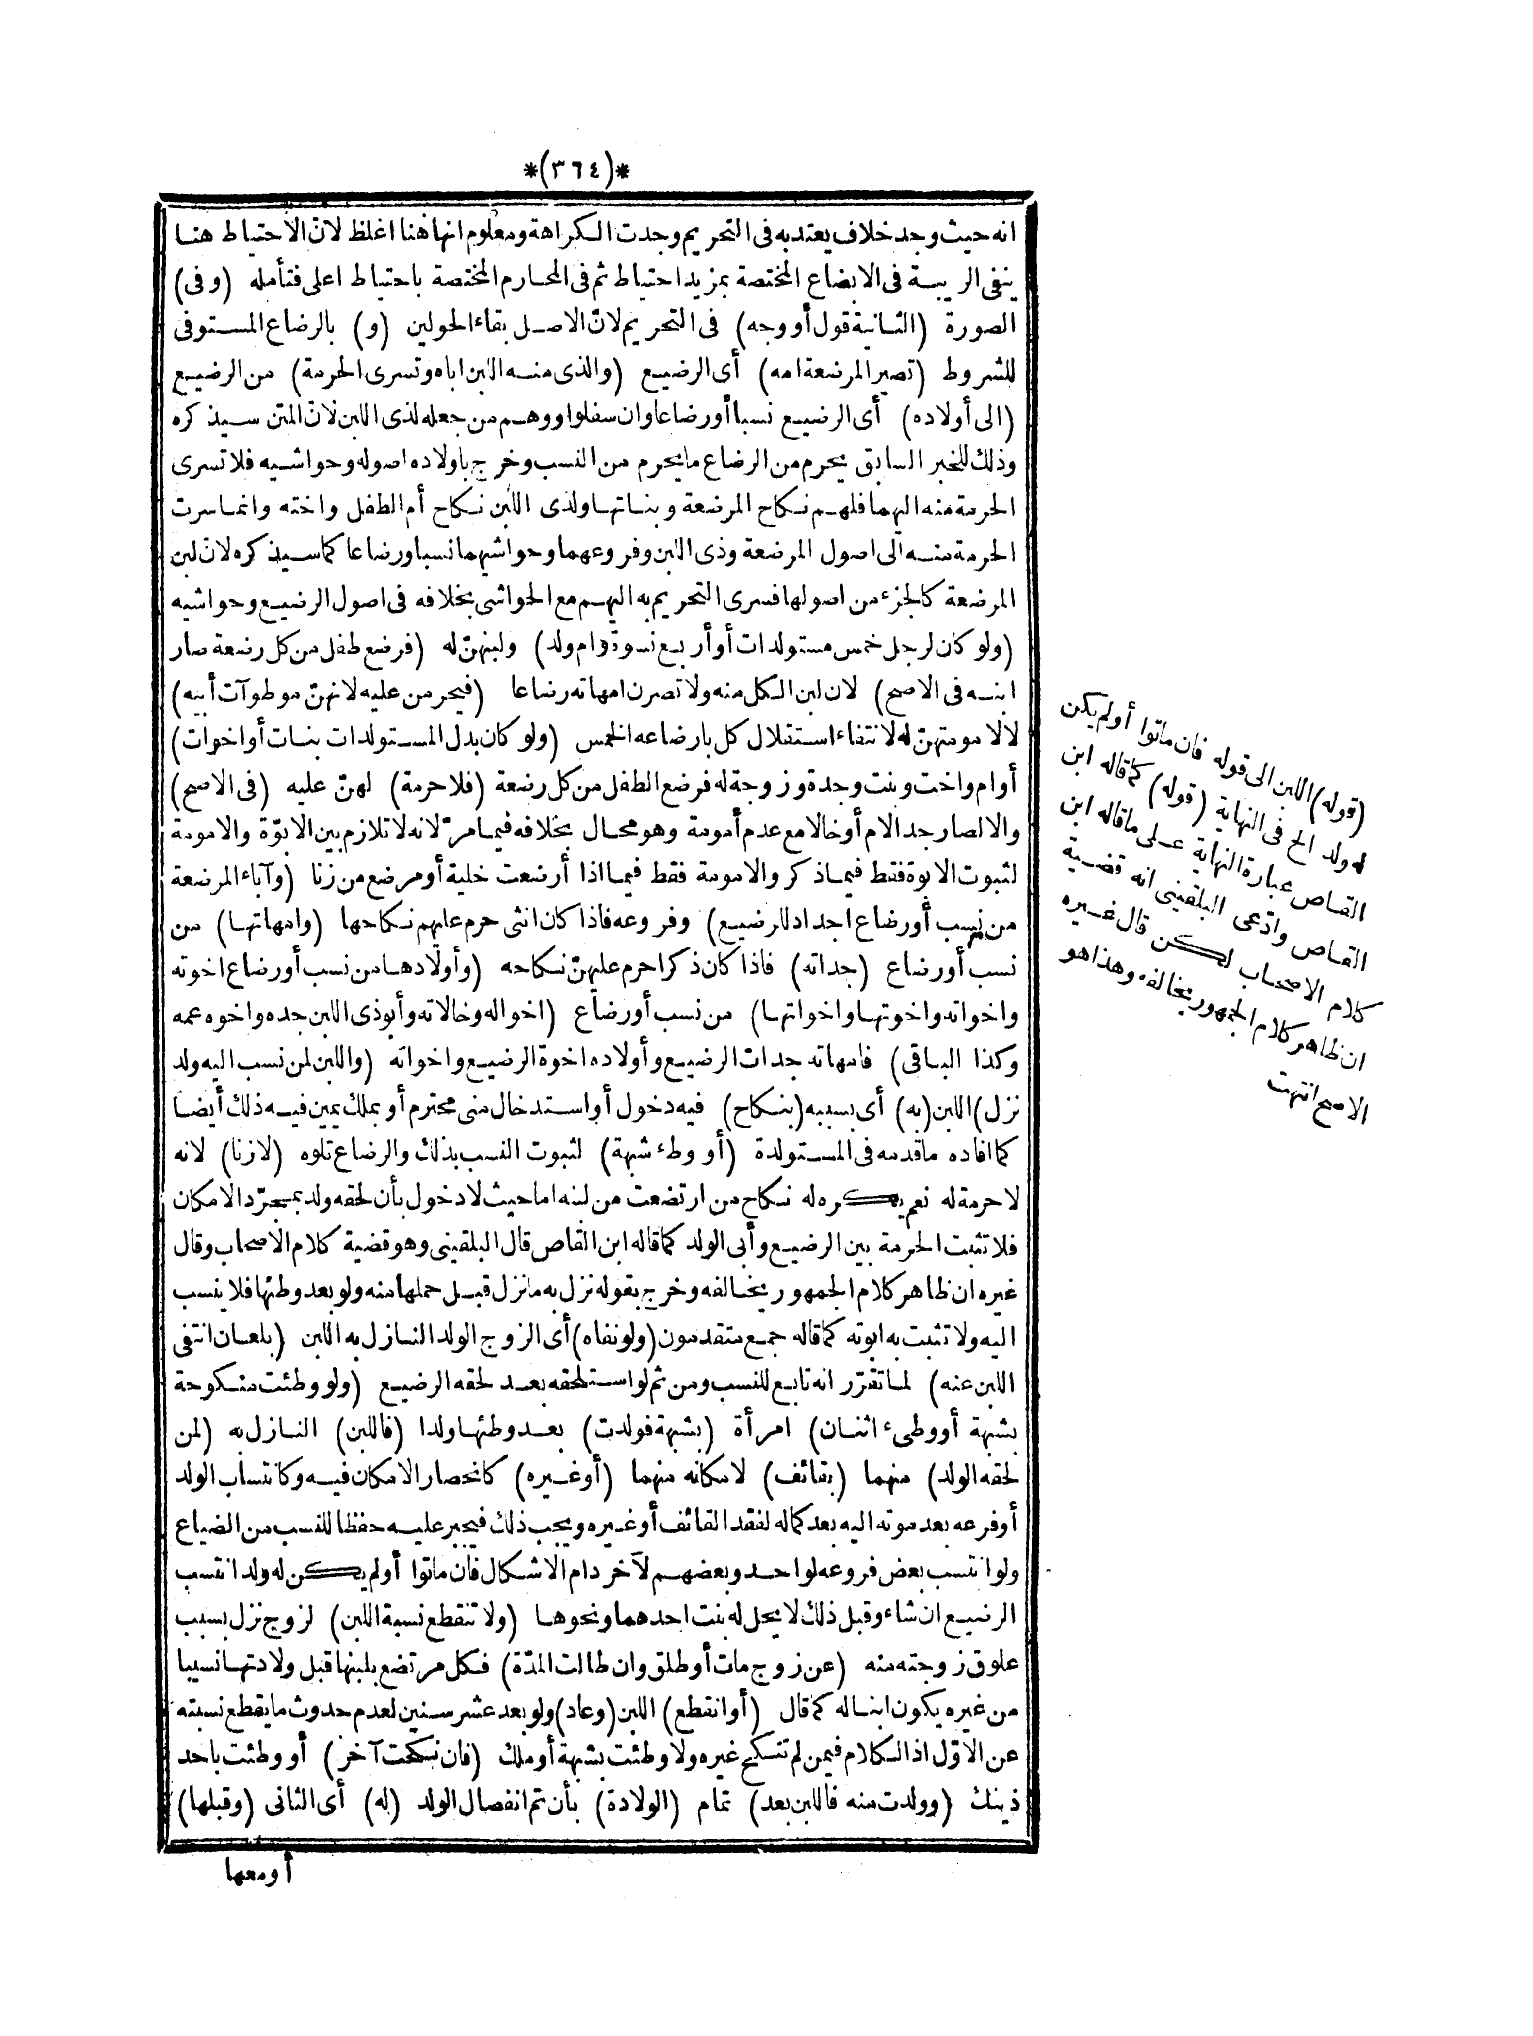 *(٣٦٤)*
انه حيث وجد خلاف يعتد به فى التحريم وجدت الكراهة ومعلوم انها هنا اغلظ لانّ الاحتياط هنا
ينفى الريبة فى الابضاع المختصة بمزيد احتياط ثم فى المحارم المختصة باحتياط اعلى فتأمله (وفى)
الصورة (الثانية قول أو وجه) فى التحريم لانّ الاصل بقاء الحولين (و) بالرضاع المستوفى
للشروط (تصير المرضعة امه) أى الرضيع (والذى منه اللبن اباه وتسرى الحرمة) من الرضيع
(الى أولاده) أى الرضيع نسبا أو رضاعا وان سفلوا ووهم من جعله لذى اللبن لانّ المتن سيذكره
وذلك للخبر السابق يحرم من الرضاع ما يحرم من النسب وخرج باولاده اصوله وحواشيه فلا تسرى
الحرمة منه اليهما فلهم نكاح المرضعة وبناتها ولذى اللبن نكاح أم الطفل واخته وانما سرت
الحرمة منه الى اصول المرضعة وذى اللبن وفروعهما وحواشيهما نسبا ورضاعا كما سيذكره لانّ لبن
المرضعة كالجزء من اصولها فسرى التحريم به اليهم مع الحواشى بخلافه فى اصول الرضيع وحواشيه
(ولو كان لرجل خمس مستولدات أو أربع نسوة وام ولد) ولبنهنّ له (فرضع طفل من كل رضعة صار
ابنه فى الاصح) لان لبن الكل منه ولا تصرن امهاته رضاعا (فيحرمن عليه لانهنّ موطوآت أبيه)
لا لامومتهنّ له لانتفاء استقلال كل بارضاعه الخمس (ولو كان بدل المستولدات بنات أو اخوات)
أو ام واخت وبنت وجدة وزوجة له فرضع الطفل من كل رضعة (فلا حرمة) لهنّ عليه (فى الاصح)
والا لصار جد الام أو خالا مع عدم أمومة وهو محال بخلافه فيما مرّ لانه لا تلازم بين الابوّة والامومة
لثبوت الابوة فقط فيما ذكر والامومة فقط فيما اذا أرضعت خلية أو مرضع من زنا (وآباء المرضعة
من نسب أو رضاع اجداد للرضيع) وفروعه فاذا كان انثى حرم عليهم نكاحها (وامهاتها) من
نسب أو رضاع (جداته) فاذا كان ذكرا حرم عليهنّ نكاحه (وأولادها من نسب أو رضاع اخوته
واخواته واخوتها واخواتها) من نسب أو رضاع (اخواله وخالاته وأبو ذى اللبن جده واخوه عمه
وكذا الباقى) فامهاته جدات الرضيع وأولاده اخوة الرضيع واخواته (واللبن لمن نسب اليه ولد
نزل) اللبن (به) أى بسببه (بنكاح) فيه دخول أو استدخال منى محترم أو بملك يمين فيه ذلك أيضا
كما افاده ما قدمه فى المستولدة (أو وطء شبهة) لثبوت النسب بذلك والرضاع تلوه (لا زنا) لانه
لا حرمة له نعم يكره له نكاح من ارتضعت من لبنه اما حيث لا دخول بأن لحقه ولد بمجرّد الامكان
فلا تثبت الحرمة بين الرضيع وأبى الولد كما قاله ابن القاص قال البلقينى وهو قضية كلام الاصحاب وقال
غيره ان ظاهر كلام الجمهور يخالفه وخرج بقوله نزل به ما نزل قبل حملها منه ولو بعد وطئها فلا ينسب
اليه ولا تثبت به ابوته كما قاله جمع متقدمون (ولو نفاه) أى الزوج الولد النازل به اللبن (بلعان انتفى
اللبن عنه) لما تقرّر انه تابع للنسب ومن ثم لو استلحقه بعد لحقه الرضيع (ولو وطئت منكوحة
بشبهة أو وطىء اثنان) امرأة (بشبهة فولدت) بعد وطئها ولدا (فاللبن) النازل به (لمن
لحقه الولد) منهما (بقائف) لامكانه منهما (أو غيره) كانحصار الامكان فيه وكانتساب الولد
أو فرعه بعد موته اليه بعد كماله لفقد القائف أو غيره ويجب ذلك فيجبر عليه حفظا للنسب من الضياع
ولو انتسب بعض فروعه لواحد وبعضهم لآخر دام الاشكال فان ماتوا أو لم يكن له ولد انتسب
الرضيع ان شاء وقبل ذلك لا يحل له بنت احدهما ونحوها (ولا تنقطع نسبة اللبن) لزوج نزل بسبب
علوق زوجته منه (عن زوج مات أو طلق وان طالت المدّة) فكل مرتضع بلبنها قبل ولادتها نسيبا
من غيره يكون ابنا له كما قال (أو انقطع) اللبن (وعاد) ولو بعد عشر سنين لعدم حدوث ما يقطع نسبته
عن الاوّل اذ الكلام فيمن لم تنكح غيره ولا وطئت بشبهة أو ملك (فان نكحت آخر) أو وطئت باحد
ذينك (وولدت منه فاللبن بعد) تمام (الولادة) بأن تم انفصال الولد (له) أى الثانى (وقبلها)
أو معها
(قوله) اللبن الى قوله فان ماتوا أو لم يكن
له ولد الخ فى النهاية (قوله) كما قاله ابن
القاص عبارة النهاية على ما قاله ابن
القاص وادّعى البلقينى انه قضية
كلام الاصحاب لكن قال غيره
ان ظاهر كلام الجمهور يخالفه وهذا هو
الاصح انتهت